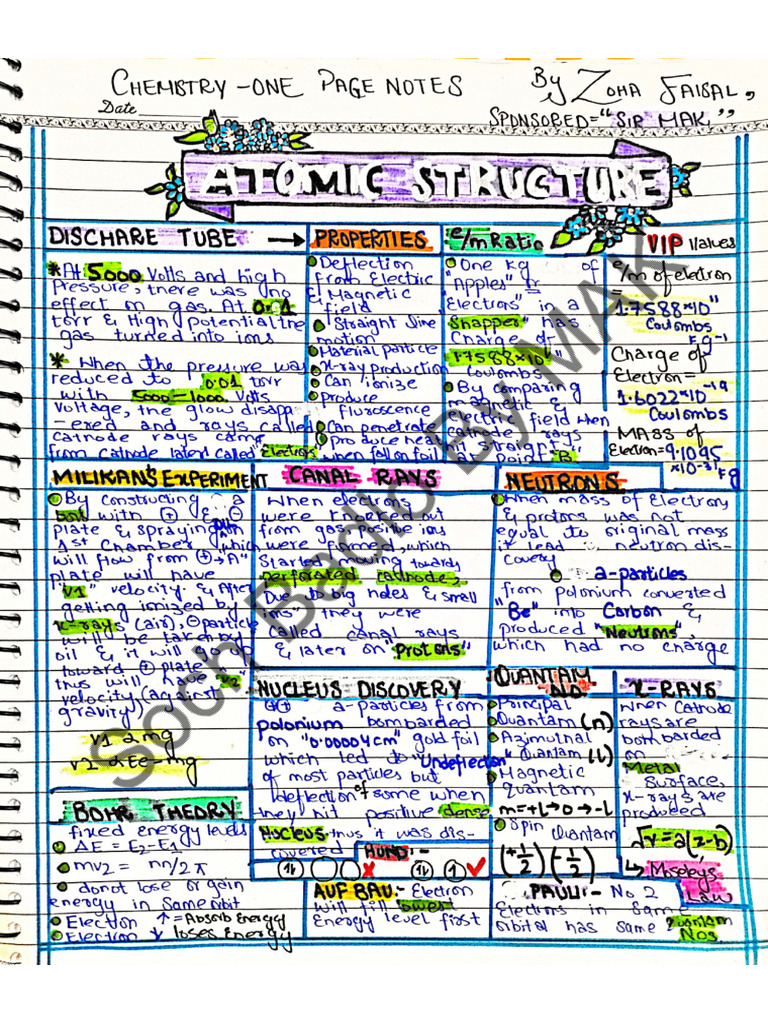 CHEMISTRY - ONE PAGE NOTES
By ZOHA FAISAL,
Date
SPONSORED="SIR MAK,"
ATOMIC STRUCTURE
DISCHARE TUBE →
* At 5000 Volts and high
pressure, there was no
effect on gas. At 0.1
torr & High potential the
gas turned into ions
* When the pressure was
reduced to 0.01 torr
with 5000-1000 Volts
Voltage, the glow disapp
-ered and rays called
cathode rays came
from cathode later called "Electrons"
PROPERTIES
Deflection
from Electric
& Magnetic
field
Straight line
motion
Material particle
X-ray production
Can ionize
produce
fluroscence
Can penetrate
produce heat
when fall on foil
e/m Ratio
One kg of
"Apples" or
"Electrons" in a
Shapper" has
Charge of
17588×10"
Coulombs
By comparing
magnetic &
electric field when
cathode rays
hit straight
at point B.
VIP Values
e/m of electron
=
1.7588×10¹¹
Coulombs
Fg⁻¹
Charge of
Electron=
1.6022×10⁻¹⁹
Coulombs
MASS of
Electron=9.1095
×10⁻³¹ Fg
MILIKAN'S EXPERIMENT
By constructing a
with + & -
plate & spraying
1st Chamber which
will flow from + → A"
plate will have
"V1" velocity. & After
getting ionized by
x-rays (air), - particle
will be taken by
oil & it will go up
toward + plate
thus will have "V2"
velocity (against
gravity)
V1 α mg
V2 α Ee-mg
CANAL RAYS
When electron
were knocked out
from gas, positive ions
were formed, which
Started moving towards
perforated cathode,
Due to big holes & small
ions" they were
called canal rays
& later on "Protons"
NEUTRONS
When mass of Electrons
& protons was not
equal to original mass
it lead neutron dis-
covery
a-particles
from polonium converted
"Be" into Carbon &
produced "Neutrons",
which had no charge
NUCLEUS DISCOVERY
a-particles from
polonium bombarded
on "0.00004cm" gold foil
which led to "Undeflection"
of most particles but
deflection of some when
they hit positive dense
Nucleus thus it was dis-
covered
QUANTAM
NO
Principal
Quantam (n)
Azimutnal
Quantam (l)
Magnetic
Quantam
m=+l→0→-l
Spin
Quantam
(+1/2)(-1/2)
X-RAYS
When Cathode
rays are
bombarded
on
Metal
Surface,
x-rays are
produced
√v=a(z-b)
↳ Moseleys
Law
BOHR THEORY
fixed energy levels
ΔE = E2-E1
mv2 = nh/2π
donot lose or gain
energy in Same orbit
Electron ↑=Absorb Energy
Electron ↓ loses Energy
HUND:-
AUF BAU:- Electron
will fill lowest
Energy level first
PAULI:- No 2
Electrons in Same
orbital has same Quantam
Nos.
Soch Badlo By MAK